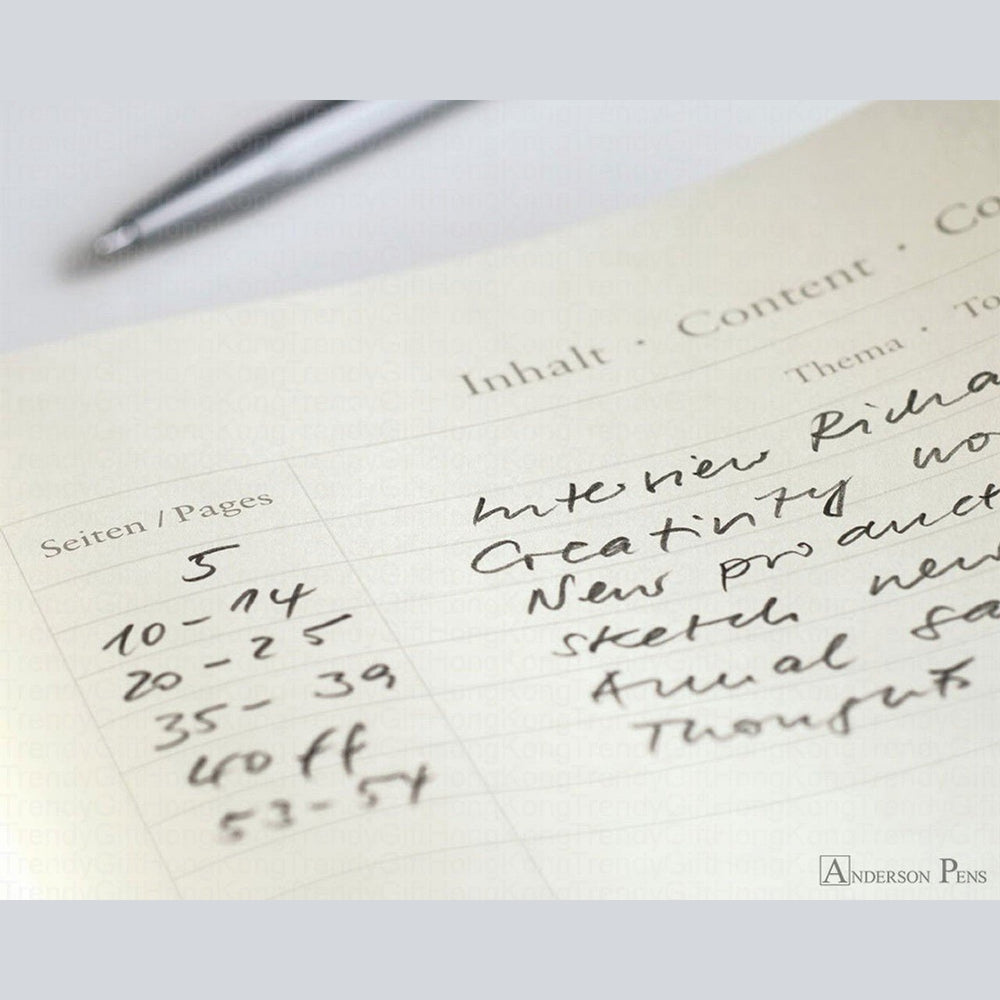 Inhalt · Content · Co
Thema · To
Seiten / Pages
5 Interview Richa
10 - 14 Creativity wo
20 - 25 New product
35 - 39 sketch new
40 ff Annual sa
53 - 54 Thoughts
ANDERSON PENS